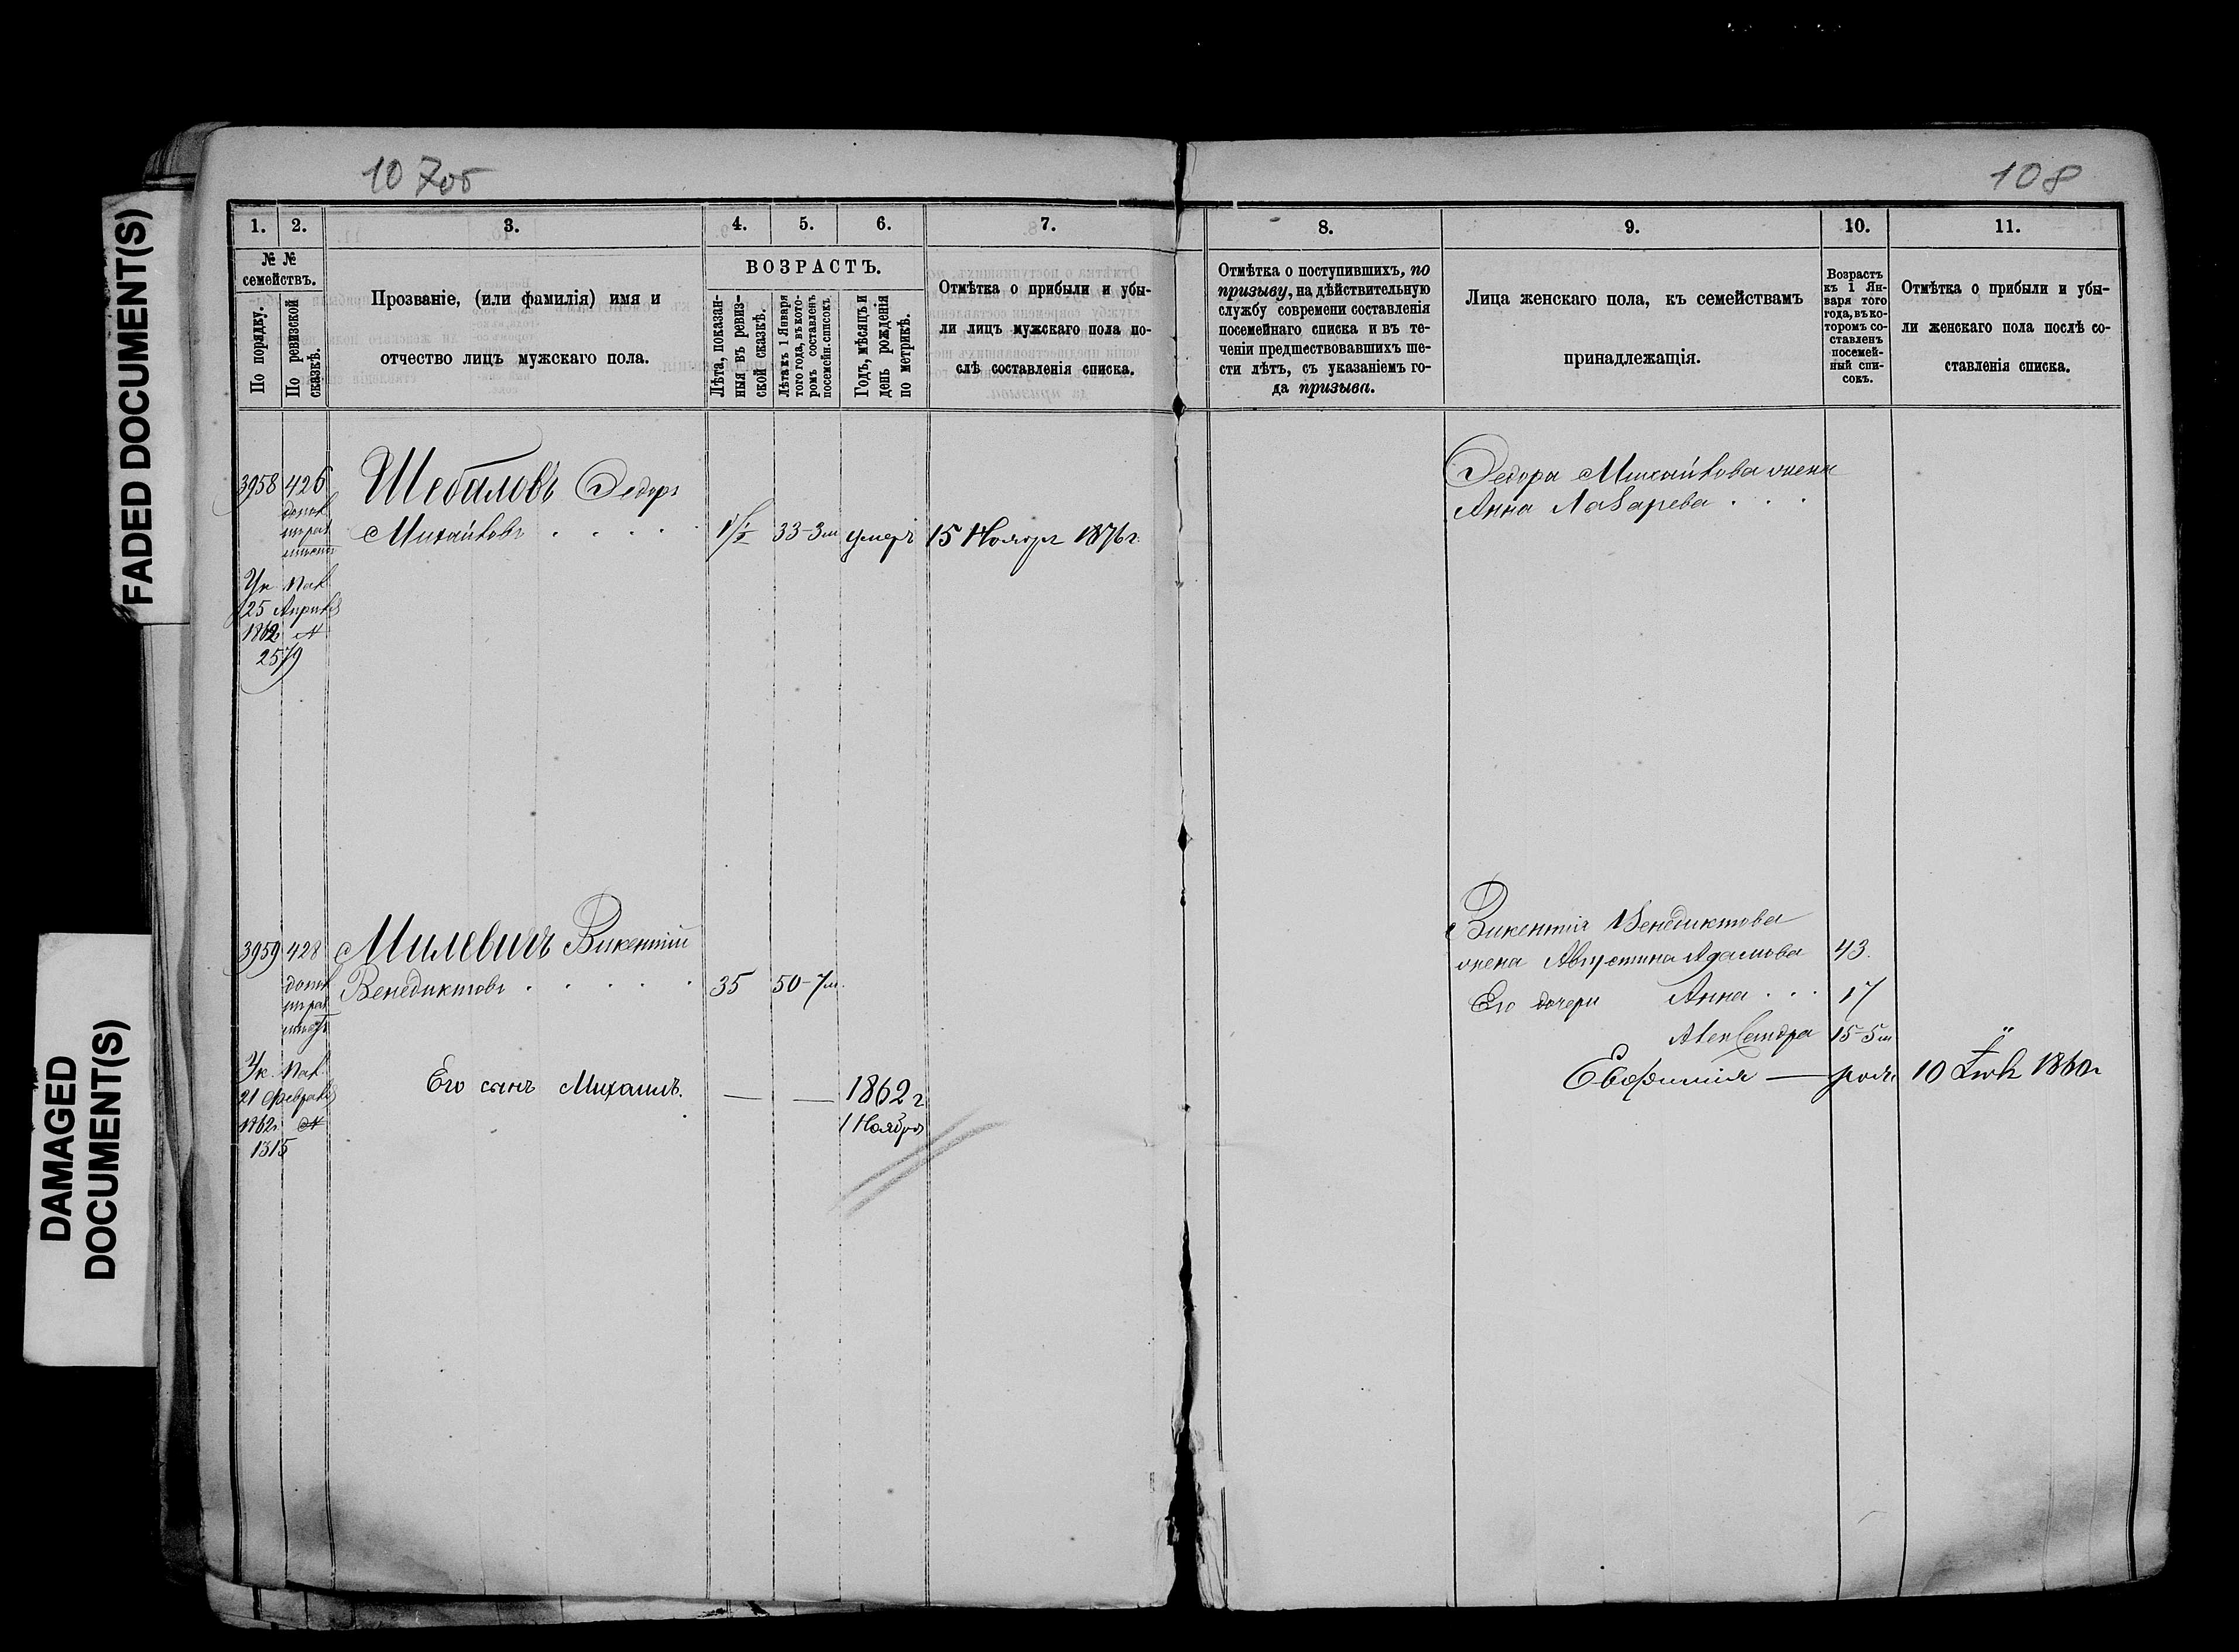 FADED DOCUMENT(S)
DAMAGED
DOCUMENT(S)
107об
108
1. 2. 3. 4. 5. 6. 7.
№ №
семействъ.
По порядку.
По ревизской
сказкѣ.
Прозваніе, (или фамилія) имя и
отчество лицъ мужскаго пола.
ВОЗРАСТЪ.
Лѣта, показан-
ныя въ ревиз-
ской сказкѣ.
Лѣта къ 1 Января
того года, въ кото-
ромъ составленъ
посемейн. списокъ
Годъ, мѣсяцъ и
день рожденія
по метрикѣ.
Отмѣтка о прибыли и убы-
ли лицъ мужскаго пола по-
слѣ составленія списка.
3958 426 Шебаловъ Федоръ
Михайловъ . . . . 1½ 33-3м умеръ 15 Ноября 1876г.
Ук. Пал.
25 Апрѣля
1862 №
2579
3959 428 Милевичъ Викентій
Венедиктовъ . . . . . 35 50-7м.
Ук. Пал.
21 Февраля
1862г. №
1315
Его сынъ Михаилъ. — — 1862г
1 Ноября
8. 9. 10. 11.
Отмѣтка о поступившихъ, по
призыву, на дѣйствительную
службу современи составленія
посемейнаго списка и въ те-
ченіи предшествовавшихъ ше-
сти лѣтъ, съ указаніемъ го-
да призыва.
Лица женскаго пола, къ семействамъ
принадлежащія.
Возрастъ
къ 1 Ян-
варя того
года, въ ко-
торомъ со-
ставленъ
посемей-
ный спи-
сокъ.
Отмѣтка о прибыли и убы-
ли женскаго пола послѣ со-
ставленія списка.
Федора Михайлова жена
Анна Лазарева . . .
Викентія Венедиктова
жена Августина Адамова 43.
Его дочери Анна . . . 17
Александра 15-5м "
Евфимія — родъ. 10 1860г